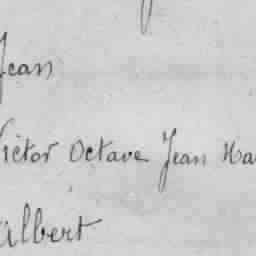 Jean
Victor Octave Jean Ma
Albert